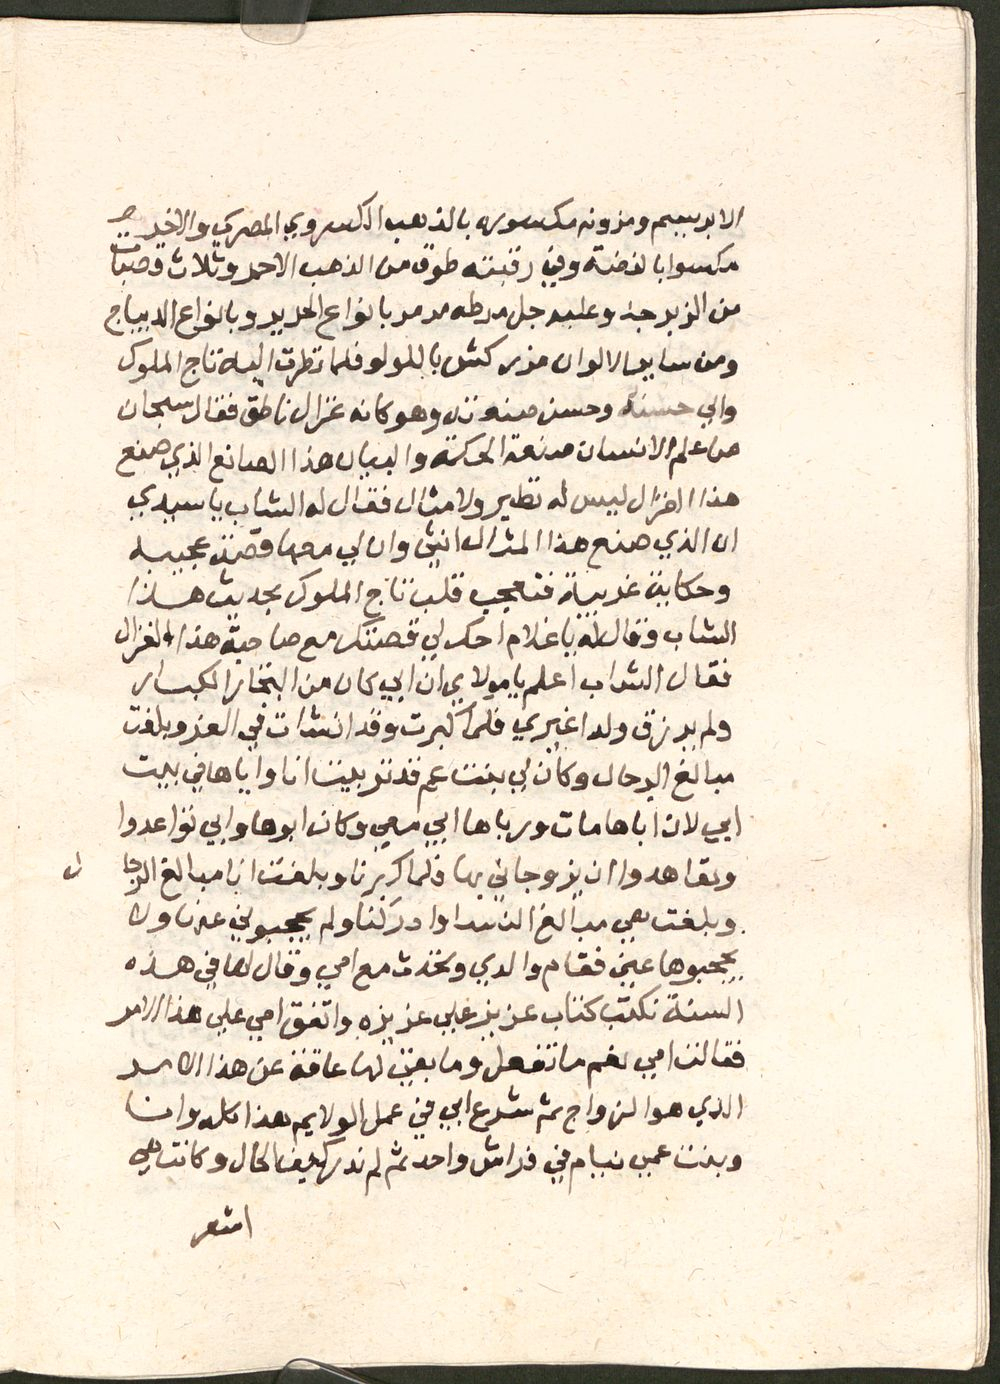 الابريسم ومزونه مكسوره بالذهب الكسروي المصري والاخر
مكسوا بالفضة وفي رقبته طوق من الذهب الاحمر وثلاث قصبات
من الزبرجد وعليه جل مرطه مدمر بانواع الحرير وبانواع الديباج
ومن ساير الالوان مزركش باللولو فلما نظرت اليه تاج الملوك
وابي حسنه وحسن صنعته وهو كانه غزال ناطق فقال سبحان
من علم الانسان صنعة الحكمة والبيان هذا الصانع الذي صنع
هذا الغزال ليس له نظير ولا مثال فقال له الشاب يا سيدي
ان الذي صنع هذا المثال انثي وان لي معها قصة عجيبه
وحكاية غريبة فتعجب قلب تاج الملوك بحديث هذا
الشاب وقال له يا غلام احك لي قصتك مع صاحبة هذا الغزال
فقال الشاب اعلم يا مولاي ان ابي كان من التجار الكبار
ولم يرزق ولدا غيري فلما كبرت وقد انشات في العز وبلغت
مبالغ الرجال وكان لي بنت عم قد تربيت انا واياها في بيت
ابي لان اباها مات ورباها ابي معي وكان ابوها وابي تواعدوا
وتعاهدوا ان يزوجاني بها فلما كبرنا وبلغت انا مبالغ الرجا
ل
وبلغت هي مبالغ النسا وادركنا ولم يحجبوني عنها ولا
يحجبوها عني فقام والدي وتحدث مع امي وقال لها في هذه
السنة نكتب كتاب عزيز علي عزيزه واتفق امي علي هذا الامر
فقالت امي نعم ما تفعل وما بقي لها عاقة عن هذا الامر
الذي هو الزواج ثم شرع ابي في عمل الولايم هذا كله وانا
وبنت عمي نيام في فراش واحد ثم لم ندر كيف الحال وكانت هي
اشعر